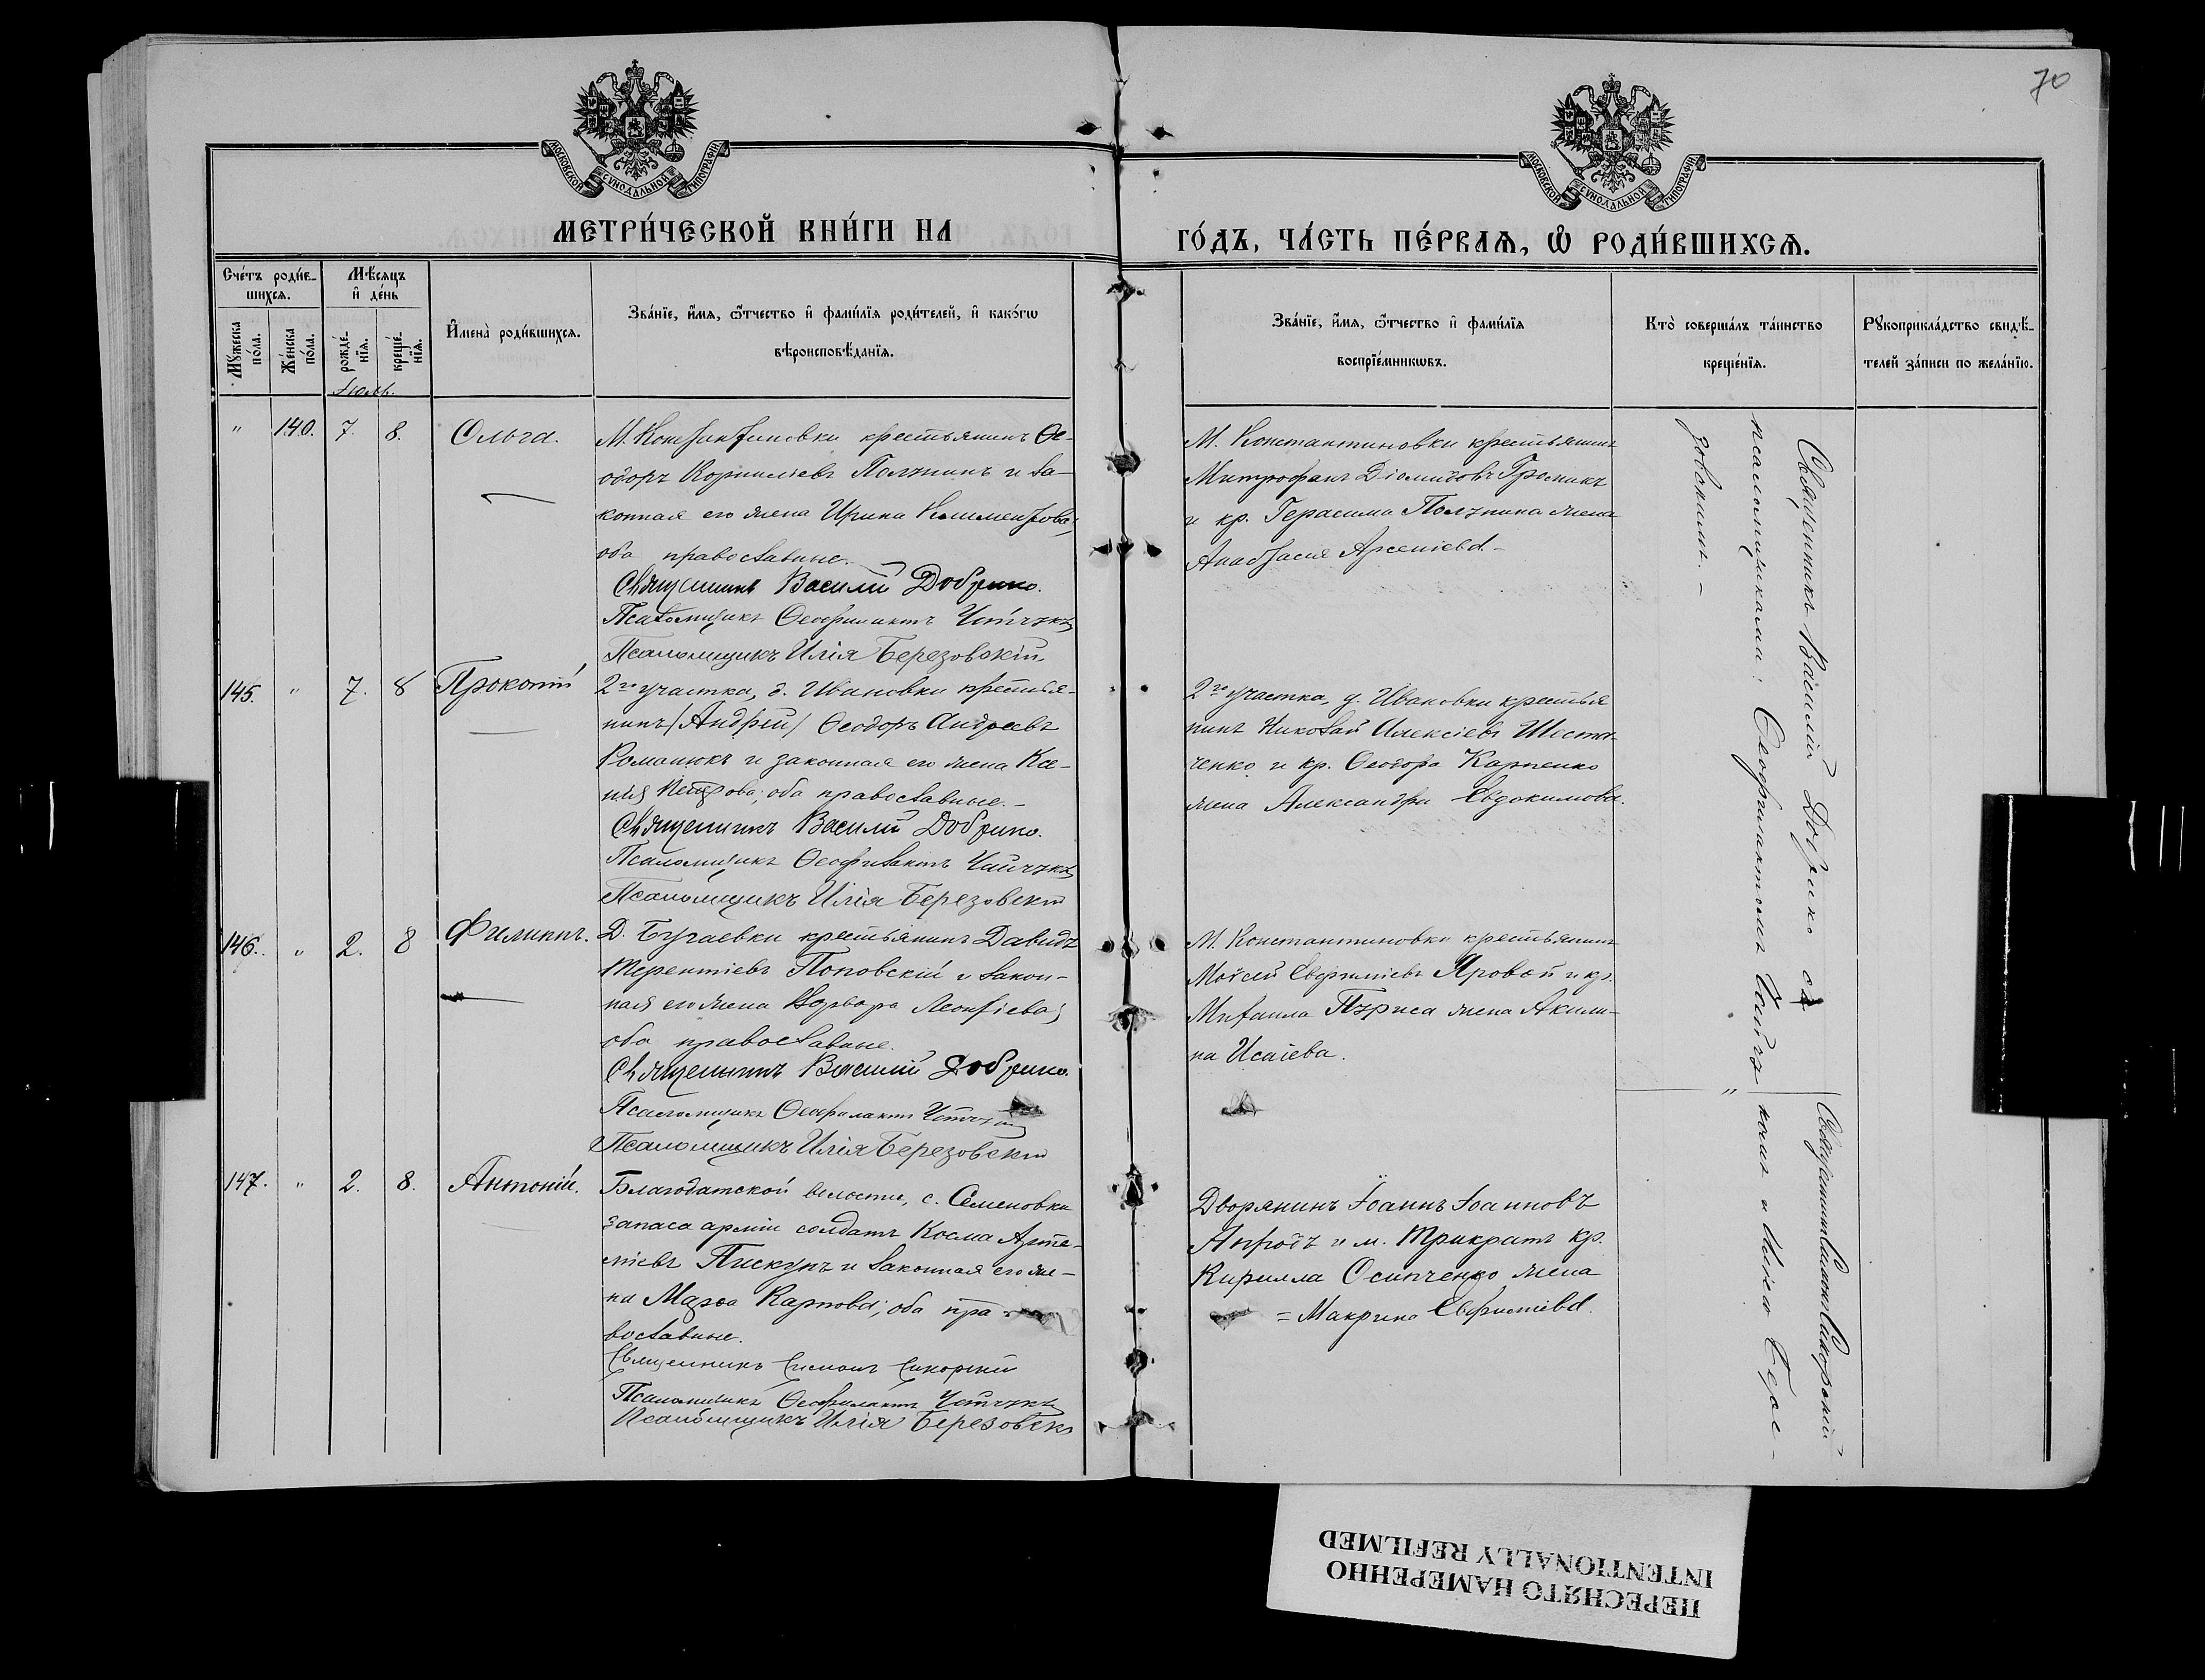 70
МОСКОВСКОЙ СѴНОДАЛЬНОЙ ТИПОГРАФІИ
МОСКОВСКОЙ СѴНОДАЛЬНОЙ ТИПОГРАФІИ
МЕТРИ́ЧЕСКОЙ КНИ́ГИ НА
ГО́ДЪ, ЧА́СТЬ ПЕ́РВАѦ, Ѡ҆ РОДИ́ВШИХСѦ.
Сче́тъ роди́в-
шихсѧ.
Мꙋ́жеска по́ла.
Же́нска по́ла.
Мѣ́сѧцъ
и҆ де́нь
рожде́-
нїѧ.
креще́-
нїѧ.
И҆мена̀ роди́вшихсѧ.
Зва́нїе, и҆́мѧ, ѻ҆́тчество и҆ фами́лїѧ роди́телей, и҆ како́гѡ
вѣроисповѣ́данїѧ.
Зва́нїе, и҆́мѧ, ѻ҆́тчество и҆ фами́лїѧ
воспрїе́мникѡвъ.
Кто̀ соверша́лъ та́инство
креще́нїѧ.
Рꙋкоприкла́дство свидѣ́-
телей за́писи по жела́нїю.
Іюль.
" 140. 7. 8. Ольга.
М. Константиновки крестьянинъ Ѳе-
одоръ Корниліевъ Полунинъ и за-
конная его жена Ирина Климентова;
оба православные.
Священникъ Василій Добрико.
Псаломщикъ Ѳеофилактъ
Псаломщикъ Илія Березовскій
М. Константиновки крестьянинъ
Митрофанъ Діомидовъ Громикъ
и кр. Герасима Полунина жена
Анастасія Арсеніева.
145. " 7. 8 Прокопій
2го участка, д. Ивановки крестья-
нинъ (Андрей) Ѳеодоръ Андреевъ
Романюкъ и законная его жена Ксе-
нія Петрова; оба православные.
Священникъ Василій Добрико.
Псаломщикъ Ѳеофилактъ
Псаломщикъ Илія Березовскій
2го участка, д. Ивановки крестья
нинъ Николай Алексіевъ Шеста-
ченко и кр. Ѳеодора Карпенко
жена Александра Евдокимова.
146. " 2. 8 Филиппъ.
Д. Бугаевки крестьянинъ Давидъ
Терентіевъ Поповскій и закон-
ная его жена Варвара Леонтіева;
оба православные.
Священникъ Василій Добрико.
Псаломщикъ Ѳеофилактъ
Псаломщикъ Илія Березовскій
М. Константиновки крестьянинъ
Моѵсей Евфиміевъ Яровой и кр.
Михаила Пуриса жена Акили-
на Исаіева.
147. " 2. 8. Антоній.
Благодатской волости, с. Семеновки
запаса арміи солдатъ Косма Арте-
міевъ Пискунъ и законная его же-
на Марѳа Карпова; оба пра-
вославные.
Священникъ Симонъ Сикорскій
Псаломщикъ Ѳеофилактъ
Псаломщикъ Илія Березовскій
Дворянинъ Іоаннъ Іоанновъ
и м. Трикратъ кр.
Кирилла Осипченко жена
= Макрина Евфиміева.
Священникъ Василій Добрико съ
псаломщиками: Ѳеофилактомъ
зовскимъ. -
Священникъ Симонъ Сикорскій
комъ и Иліею Бере-
"
ПЕРЕСНЯТО НАМЕРЕННО
INTENTIONALLY REFILMED